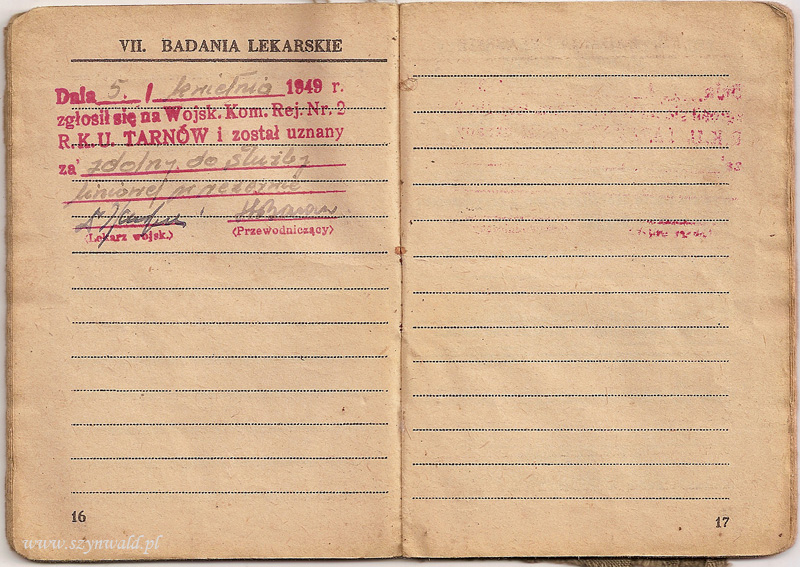 VII. BADANIA LEKARSKIE
Dnia 5. / kwietnia 1949 r.
zgłosił się na Wojsk. Kom. Rej. Nr. 2
R.K.U. TARNÓW i został uznany
za zdolny do służby
liniowej w rezerwie
(Lekarz wojsk.)
(Przewodniczący)
16
17
www.szynwald.pl